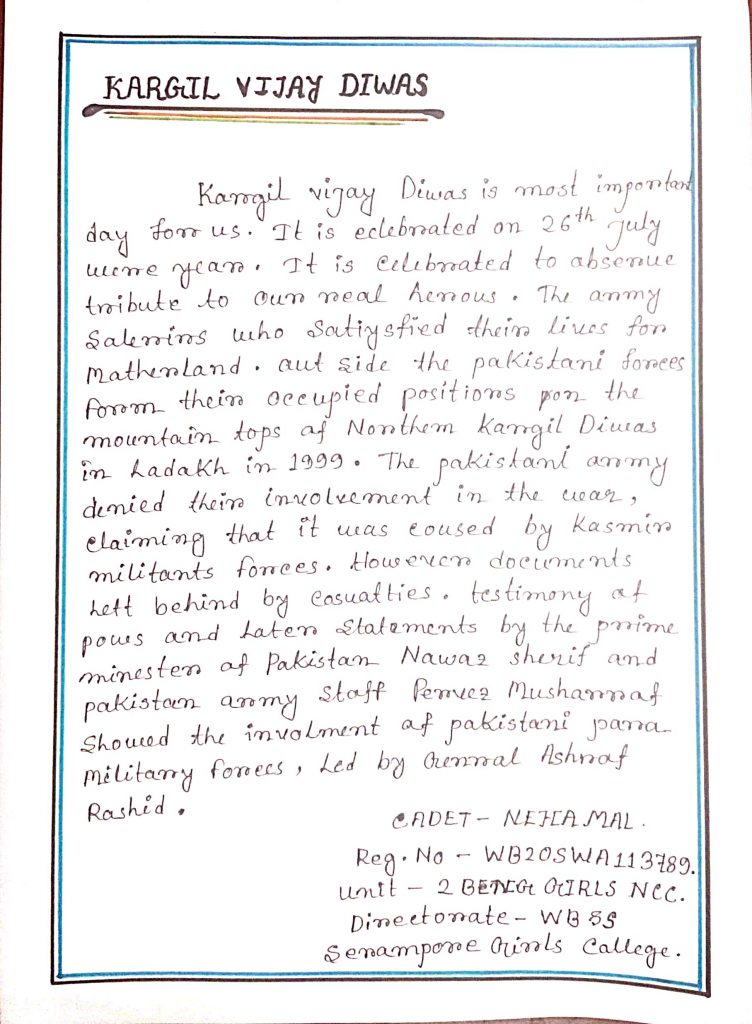 KARGIL VIJAY DIWAS
Kargil vijay Diwas is most important
day for us. It is eclebrated on 26th july
were year. It is Celebrated to absenue
tribute to our real herous. The army
Salerrins who Satiysfied their lives for
Matherland. aut side the pakistani forces
form their occupied positions pon the
mountain tops af Northem Kargil Diwas
in Ladakh in 1999. The pakistani army
denied their involvement in the wear,
claiming that it was coused by Kasmir
militants forces. However documents
Left behind by casualties. testimony af
pows and Later statements by the prime
minester af Pakistan Nawaz sherif and
pakistan army staff Pervez Musharraf
Showed the involment af pakistani para
military forces, Led by Gennral Ashraf
Rashid.
CADET - NEHA MAL.
Reg. No - WB20SWA113789.
Unit - 2 BENGL GIRLS NCC.
Directorate - WB & S
Serampore Girls Callege.